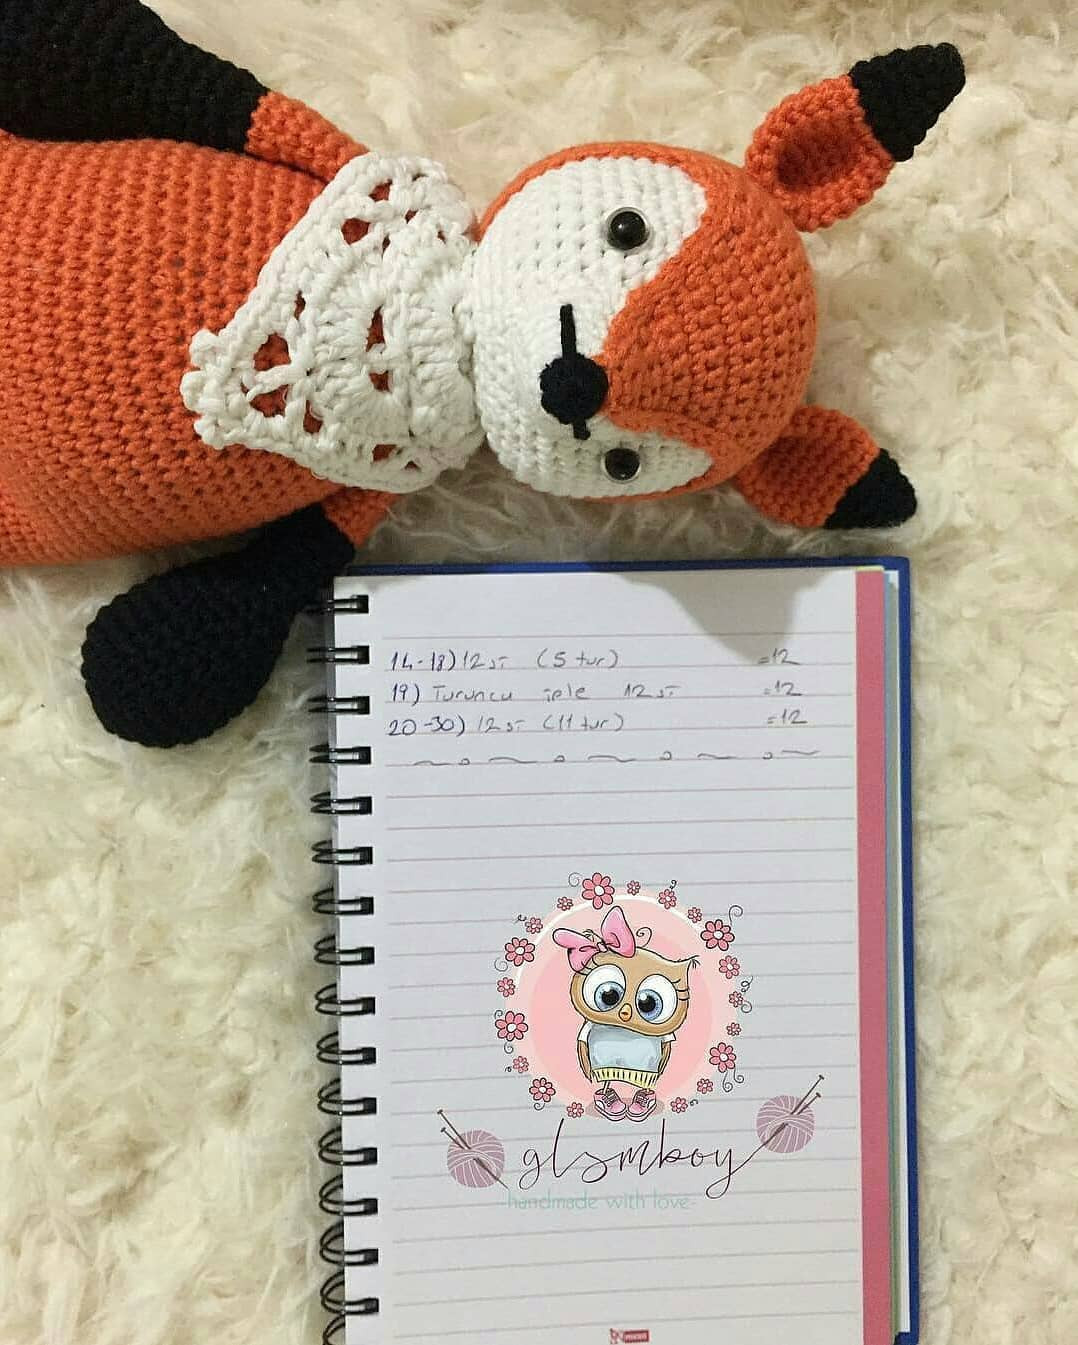 14-18) 12 sı (5 tur) =12
19) Turuncu iple 12 sı =12
20-30) 12 sı (11 tur) =12
glsmboy
handmade with love